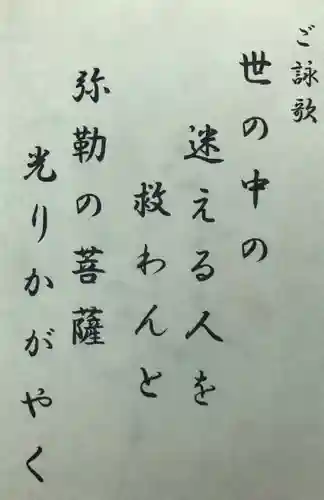 ご詠歌
世の中の
迷える人を
救わんと
弥勒の菩薩
光りかがやく